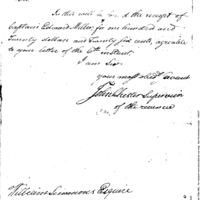 Sir
In this will be find the receipt of
Captain Edward Miller, for one hundred and
Twenty dollars and Twenty six cents, agreeable
to your letter of the 6th instant.
I am Sir
your most obedt. servant
John Chester Supervisor
of the revenue
William Simmons Esquire